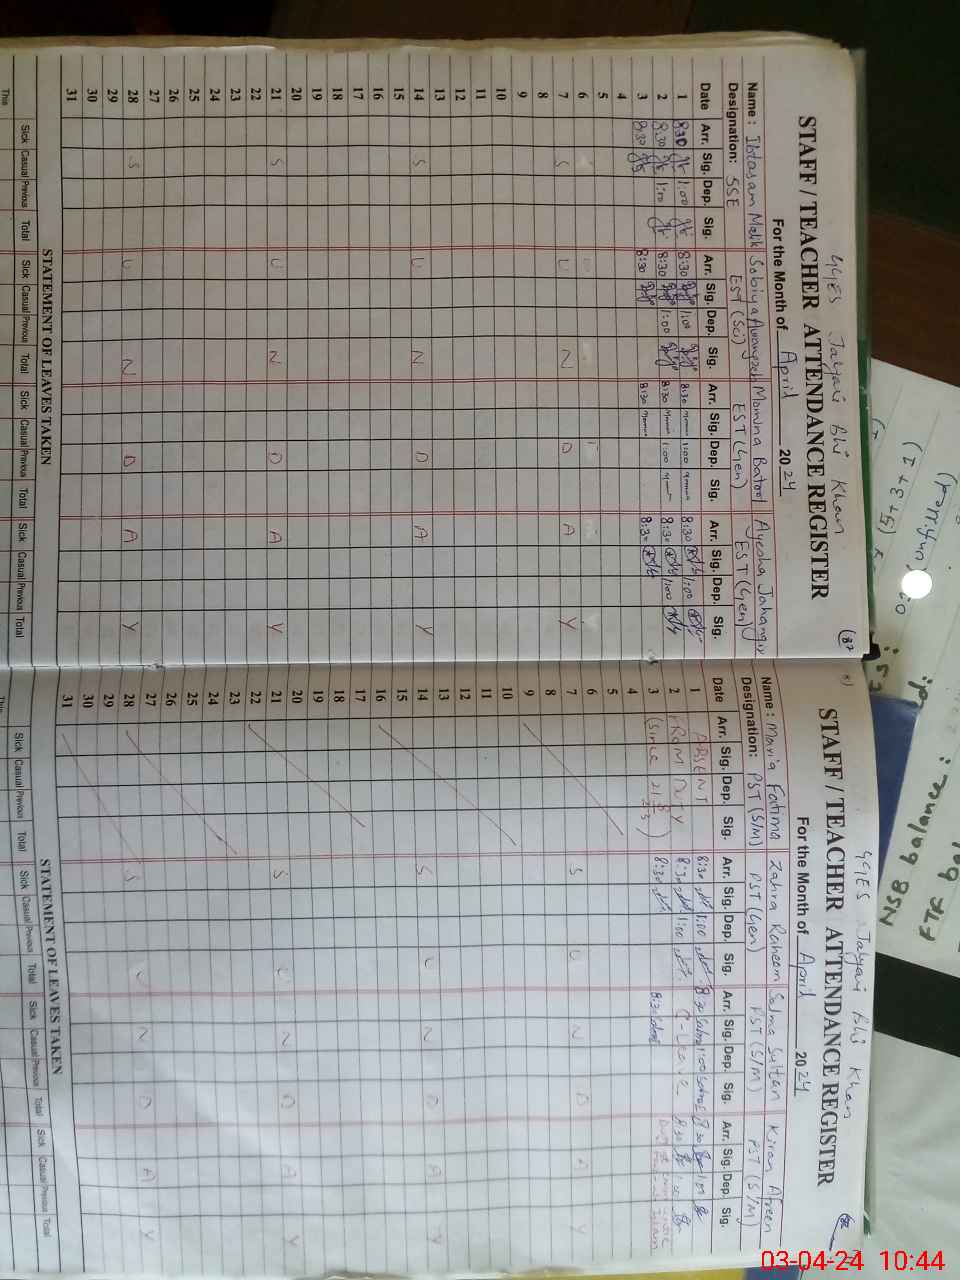 GGES Jalyari Bhi Khan
(87
STAFF / TEACHER ATTENDANCE REGISTER
For the Month of April 2024
Name : Ibtasam Malik Sobiya Aurangzeb Momina Batool Ayesha Jahangir
Designation: SSE EST (Sci) EST (Gen) EST (Gen)
Date Arr. Sig. Dep. Sig. Arr. Sig. Dep. Sig. Arr. Sig. Dep. Sig. Arr. Sig. Dep. Sig.
1 8:30 1:00 8:30 1:00 8:30 1:00 8:30 1:00
2 8:30 1:00 8:30 1:00 8:30 1:00 8:30 1:00
3 8:30 8:30 8:30 8:30
4
5
6
7 S U N D A Y
8
9
10
11
12
13
14 S U N D A Y
15
16
17
18
19
20
21 S U N D A Y
22
23
24
25
26
27
28 S U N D A Y
29
30
31
STATEMENT OF LEAVES TAKEN
Sick Casual Previous Total Sick Casual Previous Total Sick Casual Previous Total Sick Casual Previous Total
This
GGES Jalyari Bhi Khan
STAFF / TEACHER ATTENDANCE REGISTER
For the Month of April 2024
Name : Maria Fatima Zahra Raheem Salma Sultan Kiran Afreen
Designation: PST (S/M) PST (Gen) PST (S/M) PST (S/M)
Date Arr. Sig. Dep. Sig. Arr. Sig. Dep. Sig. Arr. Sig. Dep. Sig. Arr. Sig. Dep. Sig.
1 ABSENT 8:30 1:00 8:30 1:00 8:30
2 FROM DUTY 8:30 1:00 C-Leave 8:30 1:00
3 (Since 8:30 8:30
4
5
6
7 S U N D A Y
8
9
10
11
12
13
14 S U N D A Y
15
16
17
18
19
20
21 S U N D A Y
22
23
24
25
26
27
28 S U N D A Y
29
30
31
STATEMENT OF LEAVES TAKEN
Sick Casual Previous Total Sick Casual Previous Total Sick Casual Previous Total Sick Casual Previous Total
This
(5+3+1)
NSB balance :
FTF
03-04-24 10:44